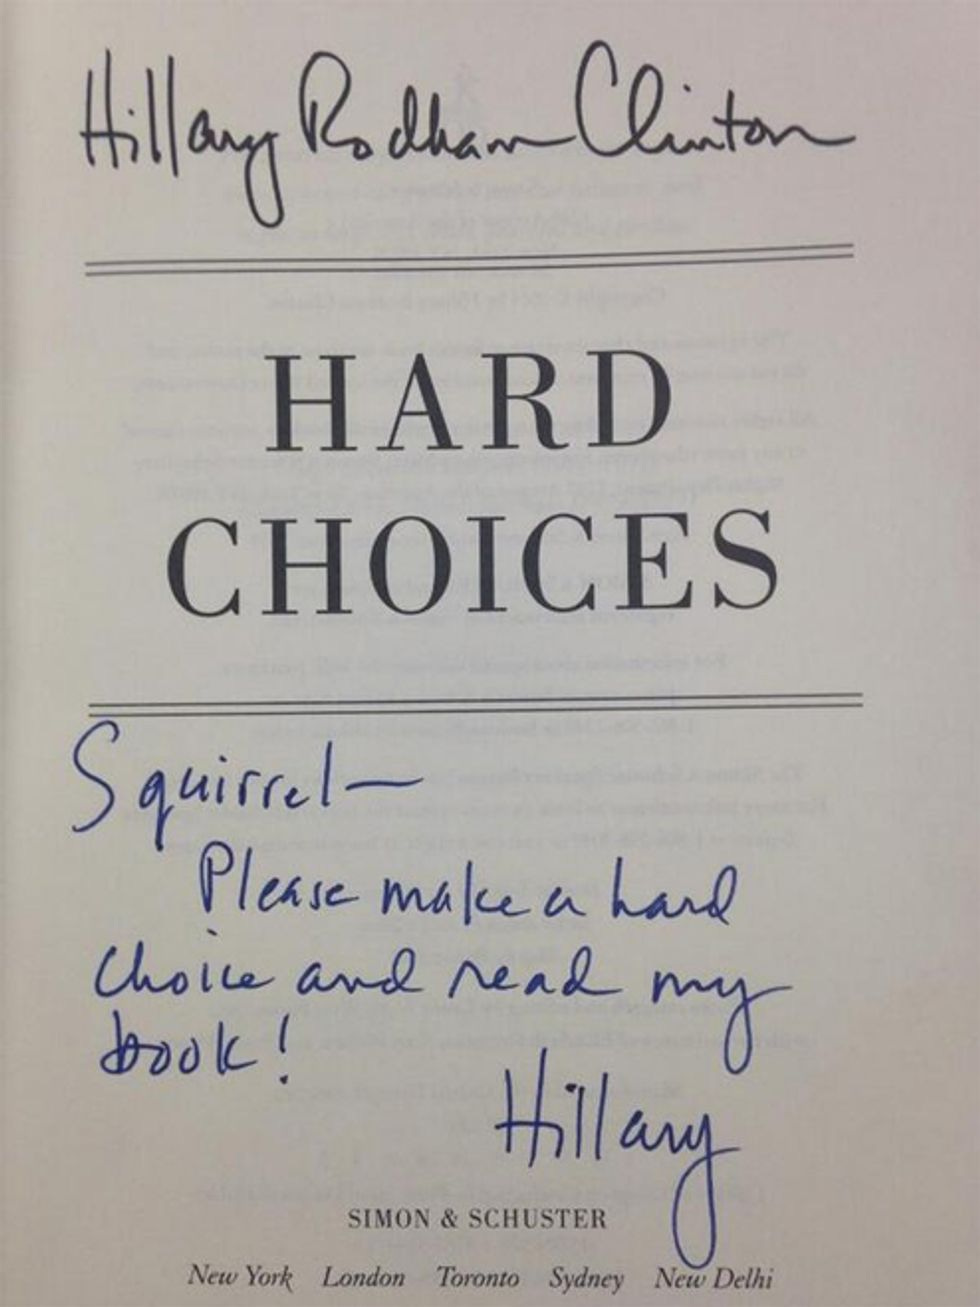 Hillary Rodham Clinton
HARD
CHOICES
Squirrel—
Please make a hard
choice and read my
book!
Hillary
SIMON & SCHUSTER
New York London Toronto Sydney New Delhi